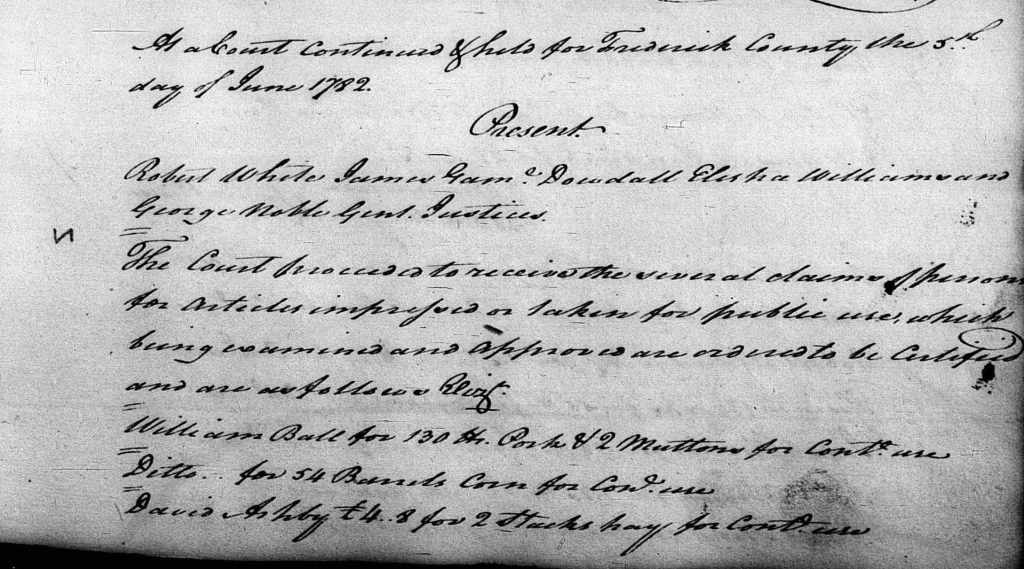 At a Court continued & held for Frederick County the 5th
day of June 1782.
Present
Robert White James Gamc. Dowdall Elisha Williams and
George Noble Gent. Justices.
The Court proceeded to receive the several claims of persons
for articles impressed or taken for public use, which
being examined and approved are ordered to be Certified
and are as follows Vizt.
William Ball for 130 lb. Pork & 2 Muttons for Contl. use
Ditto .. for 54 Barrels Corn for Cond. use
David Ashby £4..8 for 2 Stacks hay for Contl. use